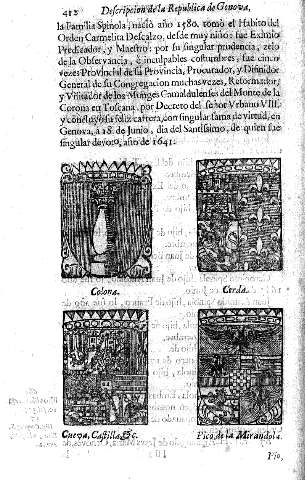 412 Descripcion de la Republica de Genova,
la Familia Spinola, naciò año 1580. tomò el Habito del
Orden Carmelita Descalzo, desde muy niño: fue Eximio
Predicador, y Maestro: por su singular prudencia, zelo
de la Observancia, è inculpables costumbres, fue cinco
vezes Provincial de su Provincia, Procurador, y Difinidor
General de su Congregacion muchas vezes, Reformador,
y Visitador de los Monges Camaldulenses del Monte de la
Corona en Toscana, por Decreto del señor Vrbano VIII.
y concluyò su feliz carrera, con singular fama de virtud, en
Genova, à 18. de Junio, dia del Santissimo, de quien fue
singular devoto, año de 1641.
Colona.
Cerda.
Cueva, Castilla, &c.
Pico, de la Mirandola.
Pio,